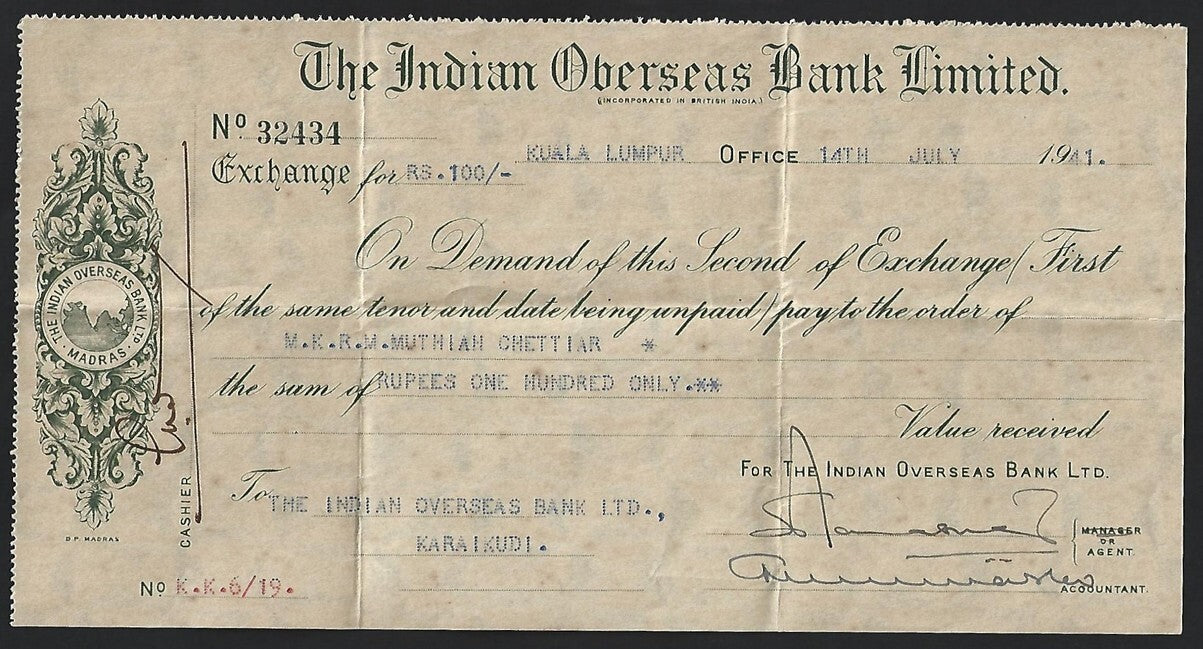 The Indian Overseas Bank Limited.
(INCORPORATED IN BRITISH INDIA.)
No 32434
KUALA LUMPUR OFFICE 14TH JULY 1941.
Exchange for RS.100/-
On Demand of this Second of Exchange (First
of the same tenor and date being unpaid) pay to the order of
M.K.R.M.MUTHIAH CHETTIAR *
the sum of RUPEES ONE HUNDRED ONLY.**
Value received
FOR THE INDIAN OVERSEAS BANK LTD.
To THE INDIAN OVERSEAS BANK LTD.,
KARAIKUDI.
MANAGER
OR
AGENT.
ACCOUNTANT.
No K.K.6/19.
CASHIER
THE INDIAN OVERSEAS BANK LTD.
MADRAS.
B.P. MADRAS